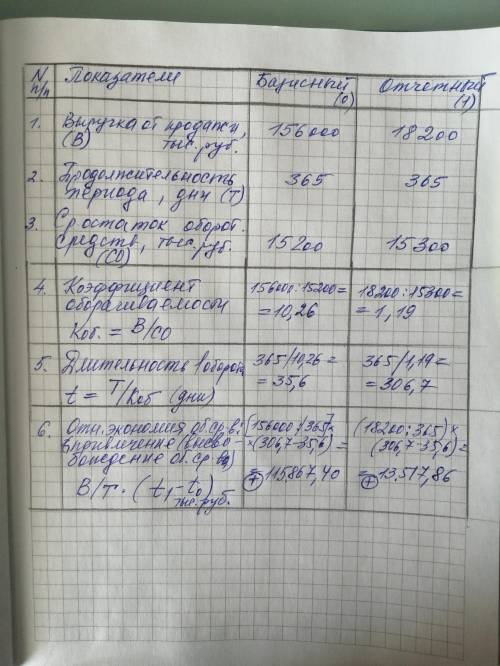 N п/п Показатели Базисный (0) Отчетный (1)
1. Выручка от продажи, 156000 18200
(В) тыс. руб.
2. Продолжительность 365 365
периода, дни (Т)
3. Ср остаток оборот.
средств, тыс. руб. 15200 15300
(СО)
4. Коэффициент 156000:15200= 18200:15300=
оборачиваемости =10,26 =1,19
Коб. = В/СО
5. Длительность 1 оборота 365/10,26= 365/1,19=
t = Т/Коб (дни) =35,6 =306,7
6. Отн. экономия об.ср-в: (156000:365)× (18200:365)×
привлечение (высво- ×(306,7-35,6)= (306,7-35,6)=
бождение об.ср-в) = +115867,40 = +13.517,86
В/Т · (t₁-t₀) тыс. руб.